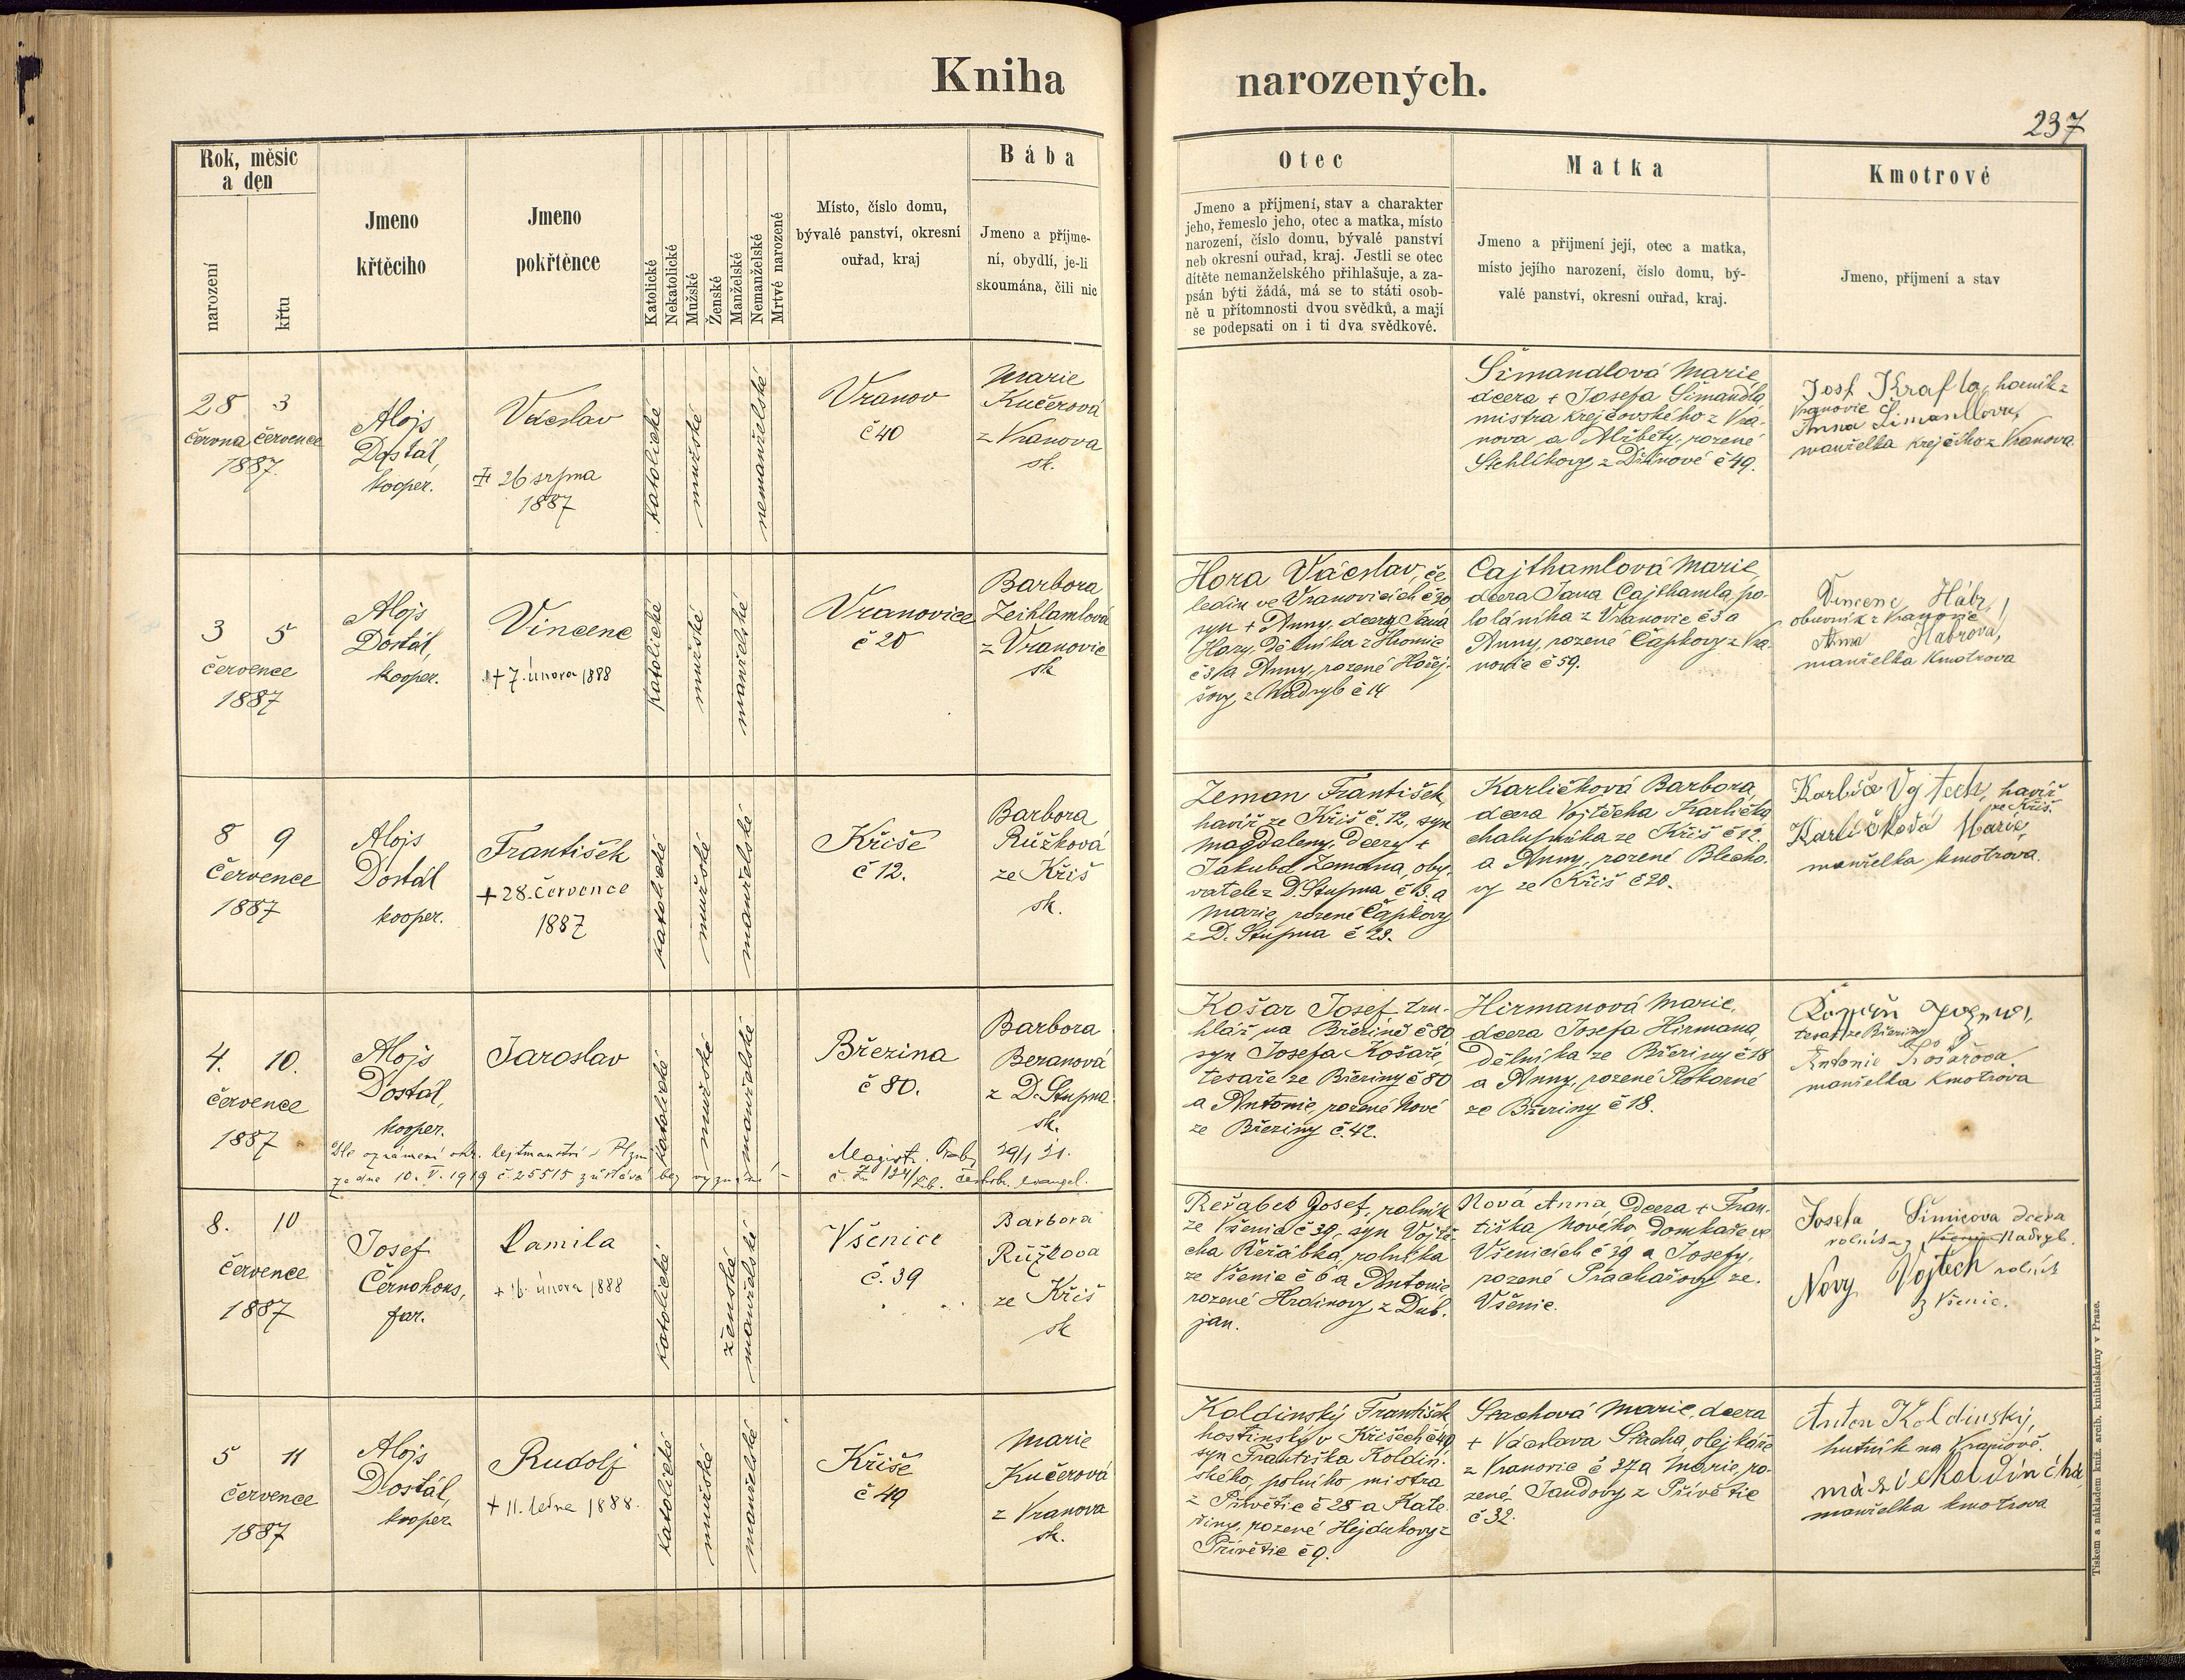 Kniha narozených.
237
Rok, měsíc
a den
narození
křtu
Jmeno
křtěcího
Jmeno
pokřtěnce
Katolické
Nekatolické
Mužské
Ženské
Manželské
Nemanželské
Mrtvé narozené
Místo, číslo domu,
bývalé panství, okresní
ouřad, kraj
Bába
Jmeno a příjme-
ní, obydlí, je-li
skoumána, čili nic
Otec
Jmeno a příjmení, stav a charakter
jeho, řemeslo jeho, otec a matka, místo
narození, číslo domu, bývalé panství
neb okresní ouřad, kraj. Jestli se otec
dítěte nemanželského přihlašuje, a za-
psán býti žádá, má se to státi osob-
ně u přítomnosti dvou svědků, a mají
se podepsati on i ti dva svědkové.
Matka
Jmeno a přijmení její, otec a matka,
místo jejího narození, číslo domu, bý-
valé panství, okresní ouřad, kraj.
Kmotrové
Jmeno, příjmení a stav
28 3
června července
1887.
Alojs
Dostál,
kooper.
Václav
26 srpna
1887
katolické
mužské
nemanželské
Vranov
č 40
Marie
Kučerová
z Vranova
sk.
Šimandlová Marie,
dcera + Josefa Šimandla
mistra krejčovského z Vra-
nova a Alžběty, rozené
Stehlíkovy z č 49.
Josf Krafta, horník z
Vranovic č
Anna Simandlova,
manželka krejčího z Vranova.
3 5
července
1887
Alojs
Dostál,
kooper.
Vincenc
+ 7. února 1888
katolické
mužské
manželské
Vranovice
č 20
Barbora
Zeithamlová
z Vranovic
sk
Hora Václav, če-
ledín ve Vranovicích č 20
syn + Anny, dcery Jana
Hory, dělníka z Chomle
č 3 a Anny, rozené Hořej-
šovy z Nadryb č 14
Cajthamlová Marie,
dcera Jana Cajthamla, po-
loláníka z Vranovic č 3 a
Anny, rozené Čapkovy z Vra-
novic č 59.
Vincenc Hábr,
obuvník z Vranovic
Anna Habrová,
manželka kmotrova
8 9
července
1887
Alojs
Dostál
kooper.
František
+ 28. července
1887
katolické
mužské
manželské
Kříše
č 12.
Barbora
Růžková
ze Kříš
sk.
Zeman František,
havíř ze Kříš č. 12, syn
Magdaleny, dcery +
Jakuba Zemana, oby-
vatele z D. Stupna č 13. a
Marie, rozené Čapkovy
z D. Stupna č 29.
Karlíčková Barbora,
dcera Vojtěcha Karlíčka
chalupníka ze Kříš č 12.
a Anny, rozené Blecho-
vy ze Kříš č 20.
Karlíče Vojtech, havíř
ze Kříš.
Karlíčková Marie,
manželka kmotrova.
4. 10.
července
1887
Alojs
Dostál,
kooper.
Jaroslav
katolické
mužské
manželské
Březina
č 80.
Barbora
Beranová
z D. Stupna.
sk.
Dle oznámení okr. hejtmanství v Plzni
ze dne 10. V. 1919 č. 25515 zůstává bez vyznání –
Magistr. Praha 29/1 21.
českobr. evangel.
Košar Josef, tru-
hlář na Březině č 80
syn Josefa Košaře
tesaře ze Březiny č 80
a Antonie, rozené Nové
ze Březiny č. 42.
Hirmanová Marie,
dcera Josefa Hirmana,
dělníka ze Březiny č 18
a Anny, rozené Pokorné
ze Březiny č 18.
tesař ze Březiny
Antonie Košařova
manželka kmotrova
8. 10
července
1887
Josef
Černohous,
far.
Kamila
+ 16. února 1888
katolické
ženské
manželské
Všenice
č. 39
Barbora
Růžkova
ze Kříš
sk
Reřabek Josef, rolník
ze Všenic č 39, syn Vojtě-
cha Řeřábka, rolníka
ze Všenic č 6 a Antonie,
rozené Hrdinovy z Dub-
jan.
Nová Anna, dcera + Fran-
tiška Nového, domkaře ve
Všenicích č 39 a Josefy,
rozené Prachařovy ze
Všenic.
Josefa Šimicova dcera
rolníka z Všenic Nadryb.
Nový Vojtech rolník
z Všenic.
5 11
července
1887
Alojs
Dostál,
kooper.
Rudolf
+ 11. ledna 1888.
katolické
mužské
manželské
Kříše
č 49
Marie
Kučerová
z Vranova
sk.
Koldinský František
hostinský v Kříších č 49,
syn Františka Koldin-
ského, polního mistra
z Přívětic č 28 a Kate-
řiny, rozené Hejdukovy z
Přívětic č 9.
Stachová Marie, dcera
+ Václava Stacha, olejkáře
z Vranovic č 27 a Marie, ro-
zené Jandovy z Přívětic
č 32.
Anton Koldinský,
hutník na Vranově.
manželka kmotrova
Tiskem a nákladem kníž. arcib. knihtiskárny v Praze.